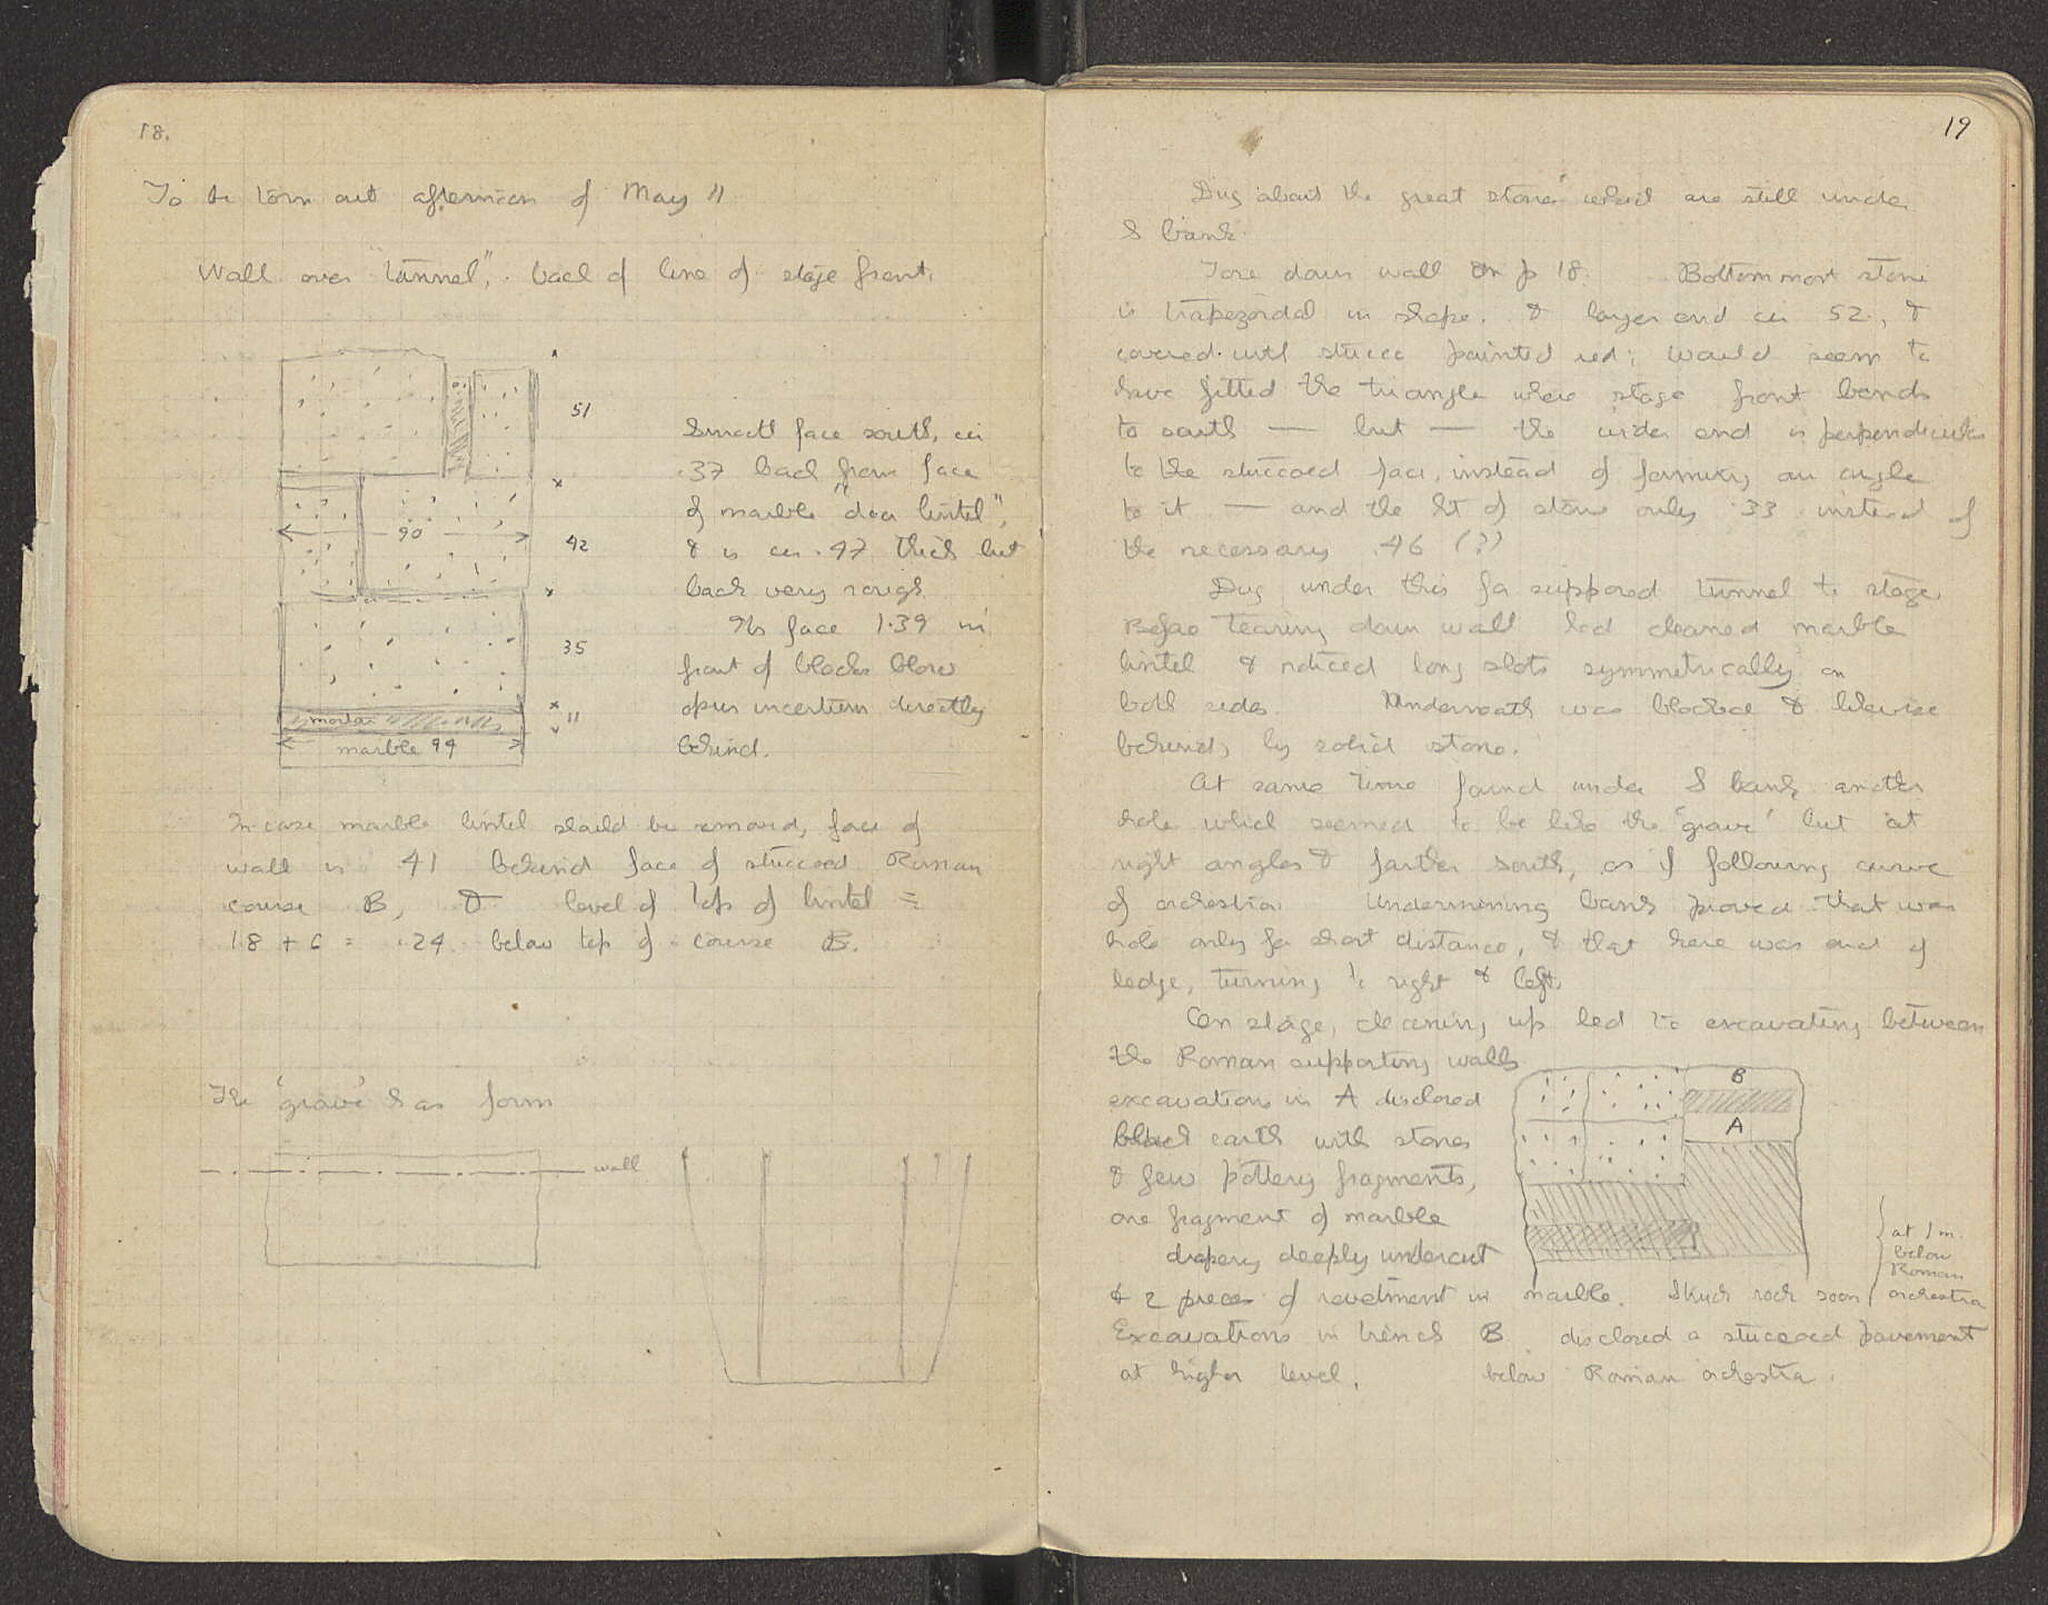 18.
To be torn out afternoon of May 11
Wall over "tunnel", back of line of stage front.
51
90
42
35
mortar
11
marble 99
Smooth face south, is
.37 back from face
of marble "door lintel",
& is ca .47 thick but
back very rough.
Its face 1.39 in
front of blocks below
opus incertum directly
behind.
In case marble lintel should be removed, face of
wall is .41 behind face of stuccoed Roman
course B, & level of top of lintel =
18 + 6 = .24 below top of course B.
The 'grave' has form
wall
19
Dug about the great stones which are still under
S bank.
Tore down wall on p 18. Bottommost stone
is trapezoidal in shape, & larger end is 52, &
covered with stucco painted red; would seem to
have fitted the triangle where stage front bends
to south — but — the wider end is perpendicular
to the stuccoed face, instead of forming an angle
to it — and the ht of stone only .33 instead of
the necessary .46 (?)
Dug under this for supposed tunnel to stage.
Before tearing down wall had cleaned marble
lintel & noticed long slots symmetrically on
both sides. Underneath was blocked & likewise
behind, by solid stone.
At same time found under S bank another
hole which seemed to be like the 'grave' but at
right angles & farther south, as if following curve
of orchestra. Undermining bank proved that was
hole only for short distance, & that here was end of
ledge, turning to right & left.
On stage, cleaning up led to excavating between
the Roman supporting walls
excavations in A disclosed
black earth with stones
& few pottery fragments,
one fragment of marble
drapery deeply undercut
& 2 pieces of revetment in marble. Struck rock soon
at 1 m.
below
Roman
orchestra
B
A
Excavations in trench B disclosed a stuccoed pavement
at higher level, below Roman orchestra.